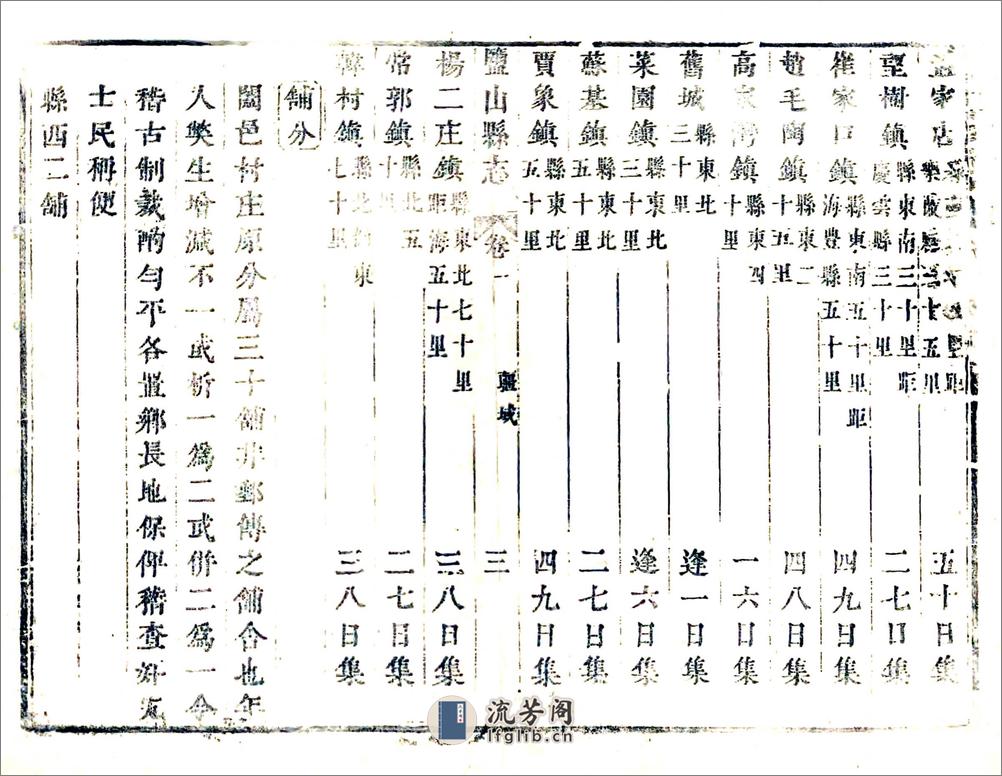 家店樂陵縣三十五里 五十日集
望樹鎮縣東南三十里距慶雲縣三十里 二七日集
崔家口鎮縣東南五十里距海豊縣五十里 四九日集
趙毛陶鎮縣東二十五里 四八日集
高家灣鎮縣東四十里 一六日集
舊城縣東北三十里 逢一日集
菜園鎮縣東北三十里 逢六日集
蘇基鎮縣東北五十里 二七日集
賈象鎮縣東北五十里 四九日集
鹽山縣志 卷一 疆域 三
楊二庄鎮縣東北七十里距海五十里 三八日集
常郭鎮縣北十五里 二七日集
韓村鎮縣北東七十里 三八日集
舖分
闔邑村庄原分屬三十舖非郵傳之舖舍也年
人獘生增減不一或析一爲二或併二爲一今
稽古制裁酌勻平各置鄉長地保俾稽查奸宄
士民稱便
縣西二舖
流芳阁
lfglib.cn